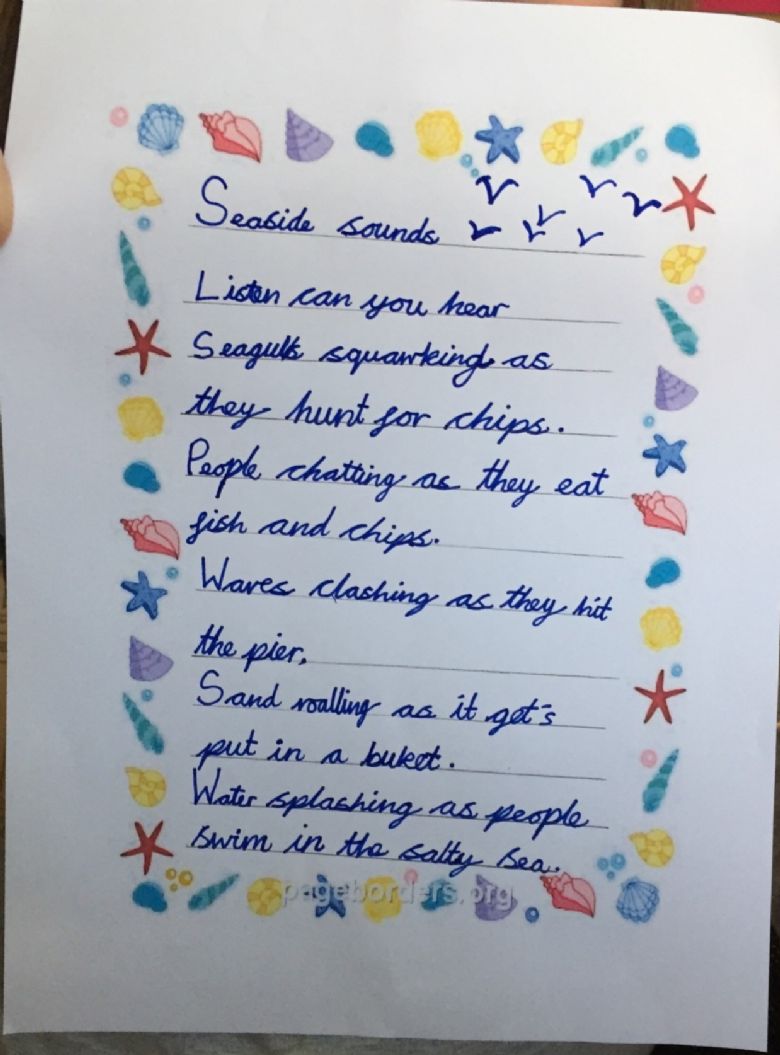 Seaside sounds
Listen can you hear
Seagulls squawking as
they hunt for chips.
People chatting as they eat
fish and chips.
Waves clashing as they hit
the pier.
Sand roalling as it get's
put in a buket.
Water splashing as people
swim in the salty sea.
pageborders.org